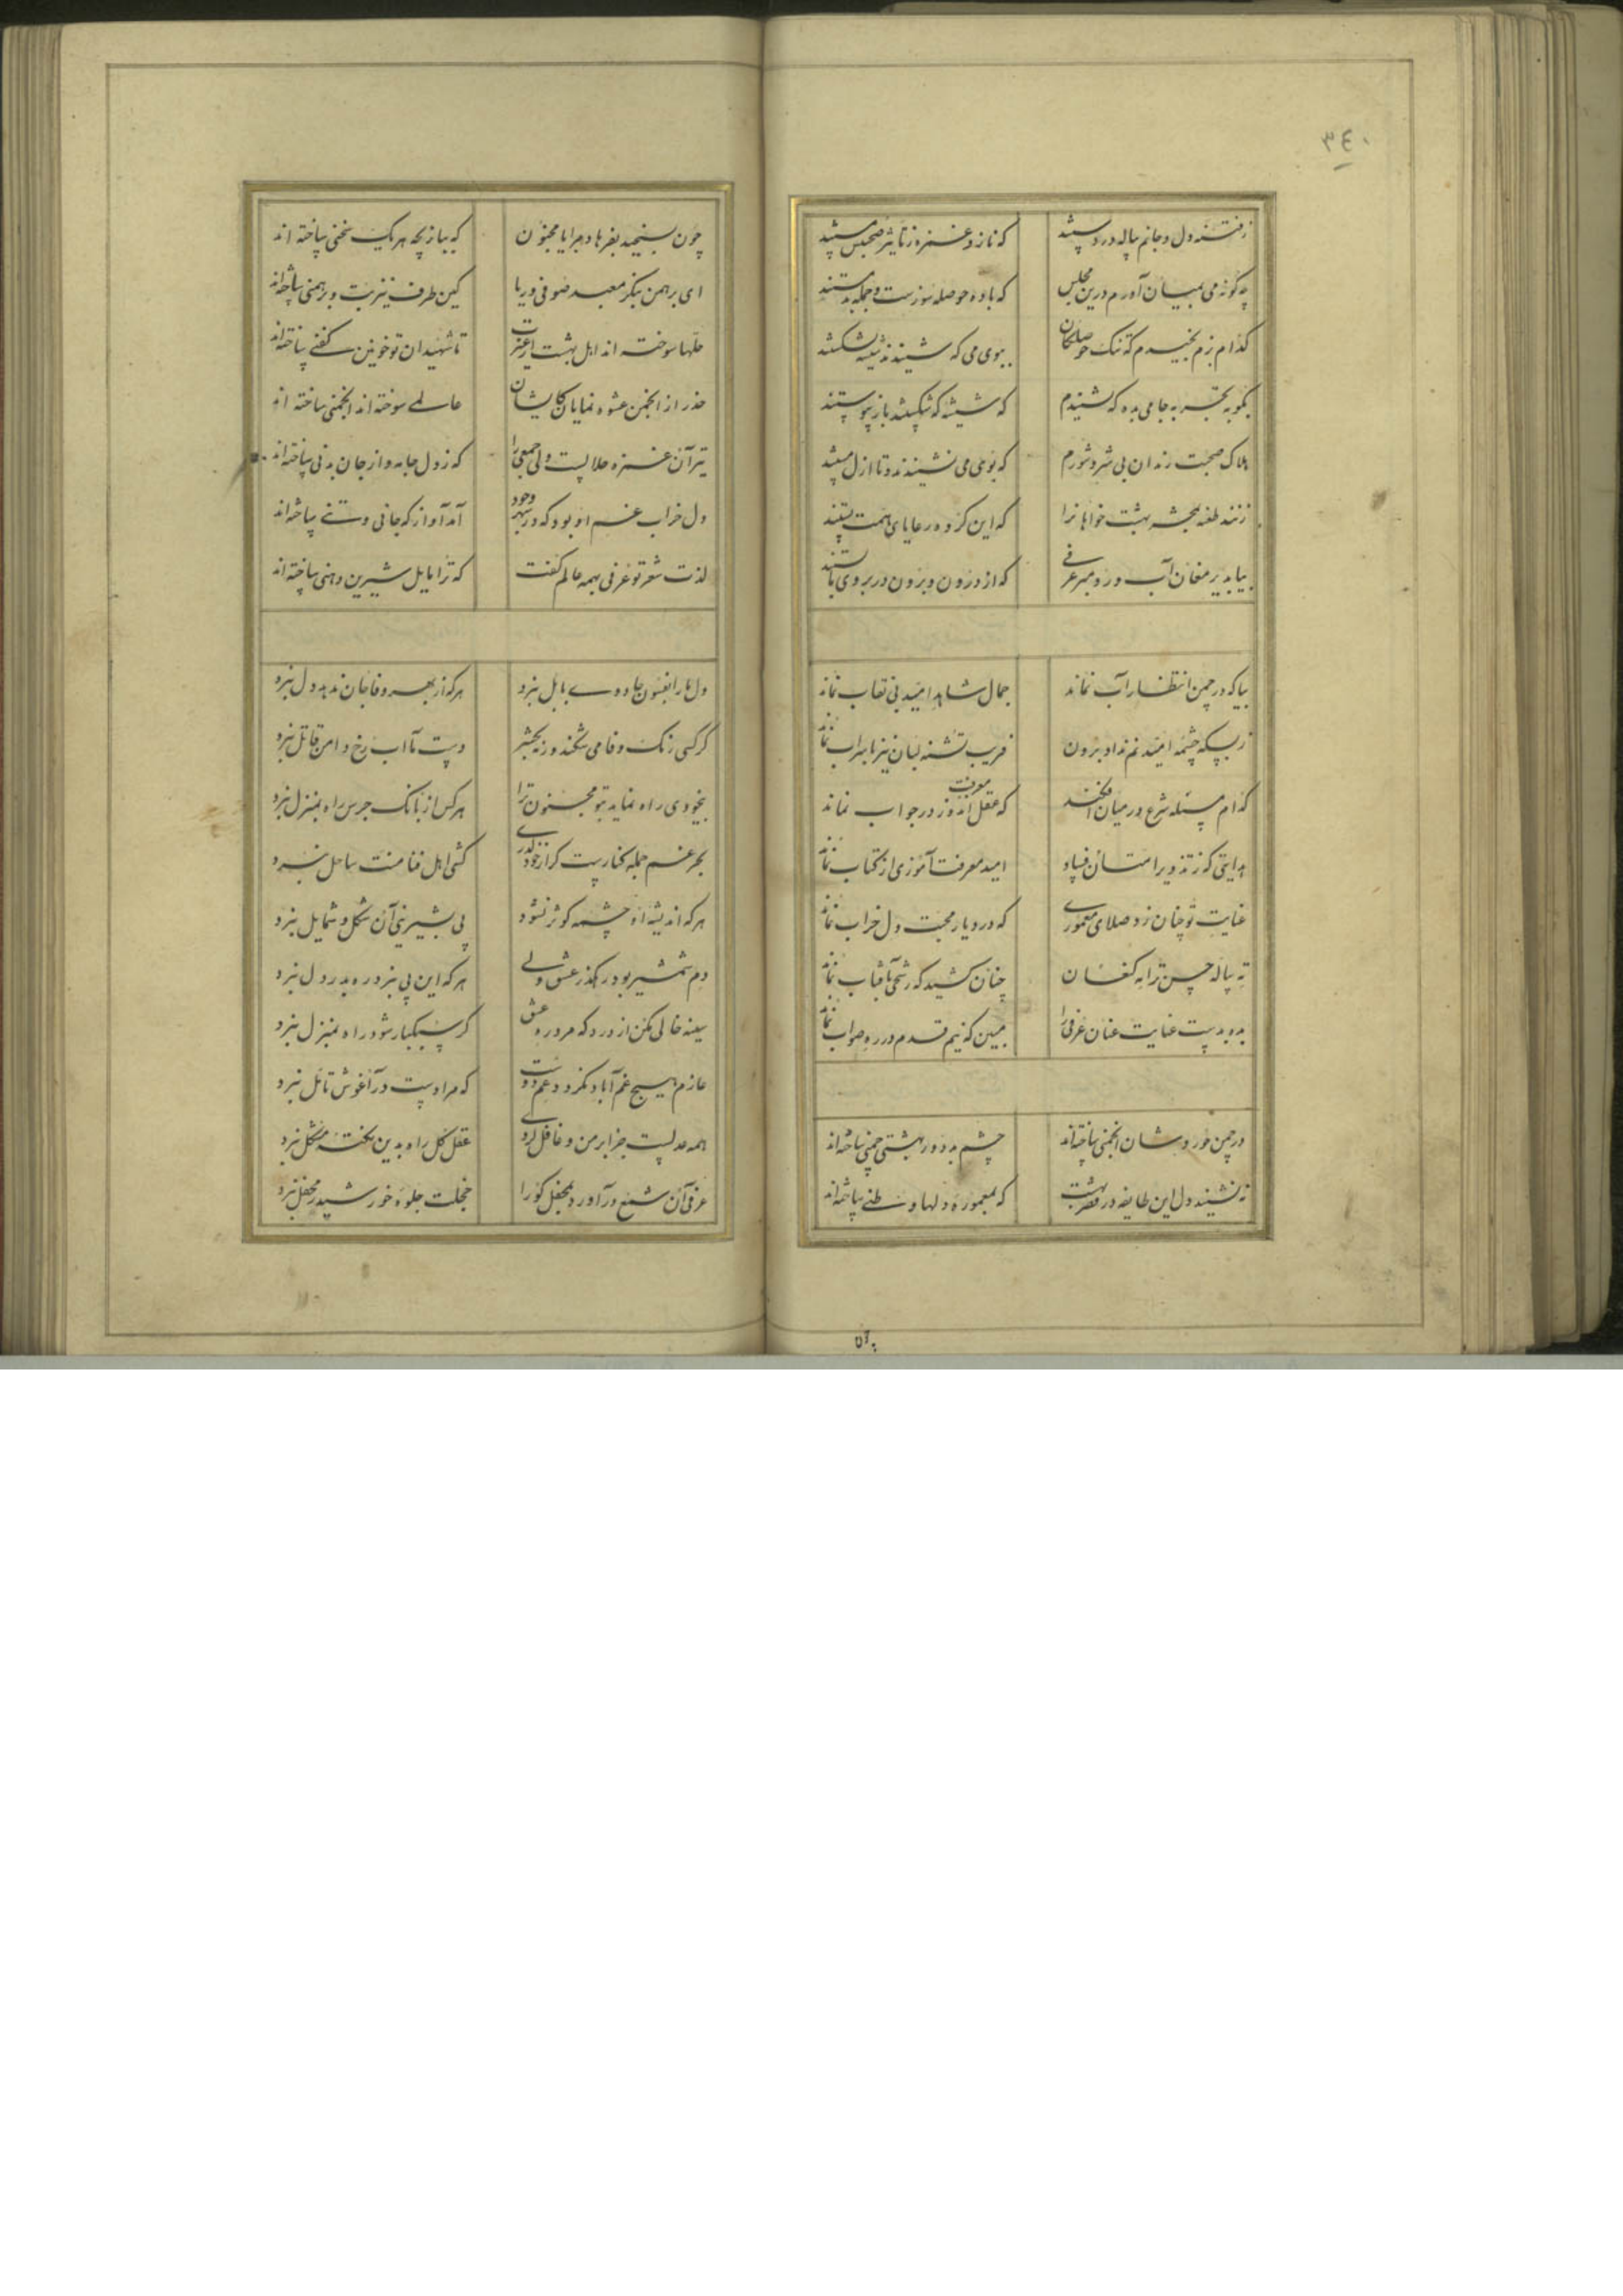 ٣٤٠
ز فتنه دل و جانم پیاله در دستند
که ناز و غمزه ز تاثیر صحبتش مستند
چه گونه می بمیان آورم درین مجلس
که باده حوصله سوزست و جمله بد مستند
کدام بزم بخیدم که تنک حوصلکان
ببوی می که شنیدند شیشه بشکستند
بکو بمحتسب به جامی بده که شنیدم
که شیشه که شکستند باز پیوستند
هلاک صحبت رندان بی شر و شورم
که بوی می نشنیدند و تا ازل مستند
زنند طعنه بحشر بهشت خواهانرا
که این کروه رعایای همت پستند
بیا بدیر مغان آب رو مبر عرفی
که از درون و برون در بروی ما بستند
بیا که در چمن انتظار آب نماند
جمال شاهد امید بی نقاب نماند
ز بسکه چشمه امید نم نداد برون
فریب تشنه لبان نیز با سراب نماند
کدام مسئله شرع در میان افکند
که عقل معرفت اندوز در جواب نماند
هدایتی که ز تزویر استان فساد
امید معرفت آموزی از کتاب نماند
عنایت تو چنان زد صلای معموری
که در دیار محبت دل خراب نماند
ته پیاله حسن ترا مه کنعان
چنان کشید که رشحی بآفتاب نماند
بده بدست عنایت عنان عرفی را
ببین که نیم قدم در ره صواب نماند
در چمن حور وشان انجمنی ساخته‌اند
چشم بد دور بهشتی چمنی ساخته‌اند
نه نشیند دل این طایفه در قصر بهشت
که بمعموره دلها وطنی ساخته‌اند
چون بسنجید بفرهاد مرا یا مجنون
که ببازیچه هر یک سخنی ساخته اند
ای برهمن بنگر معبد صوفی و ریا
کین طرف نیز بت و برهمنی ساخته‌اند
حلها سوخته اند اهل بهشت از غیرت
تا شهیدان تو خونین کفنی ساخته‌اند
حذر از انجمن عشوه نمایان کایشان
عالمی سوخته اند انجمنی ساخته اند
تیر آن غمزه حلالست ولی جمعی را
که ز دل جامه و از جان بدنی ساخته‌اند
دل خراب غم او بود که در شهر وجود
آمد آواز که جانی و تنی ساخته‌اند
لذت شعر تو عرفی بهمه عالم گفت
که ترا مایل شیرین دهنی ساخته‌اند
دل ما را بفسون جادوی بابل نبرد
هر که از بهر وفا جان ندهد دل نبرد
گر کسی رنک وفا می شکند روز بحشر
دست ما آب رخ دامن قاتل نبرد
بیخودی راه نماید بتو مجنون ترا
هر کس از بانک جرس راه بمنزل نبرد
بحر غم جمله کنارست کر از خود گذری
کشتی اهل فنا منت ساحل نبرد
هر که اندیشه او چشمه کوثر نشود
پی بشیرینی آن شکل و شمایل نبرد
دم شمشیر بود رهگذر عشق ولی
هر که این پی نبرد ره بدر دل نبرد
سینه خالی مکن از درد که مرد ره عشق
گر سبکبار شود راه بمنزل نبرد
عازم هیچ غم آباد نکردد غم دوست
که مرا دست در آغوش تأمل نبرد
همه عدلست جزا بر من و غافل کردی
عقل کل راه بدین نکته مشکل نبرد
عرفی آن شمع در آورد بمحفل کو را
خجلت جلوه خورشید ز محفل نبرد